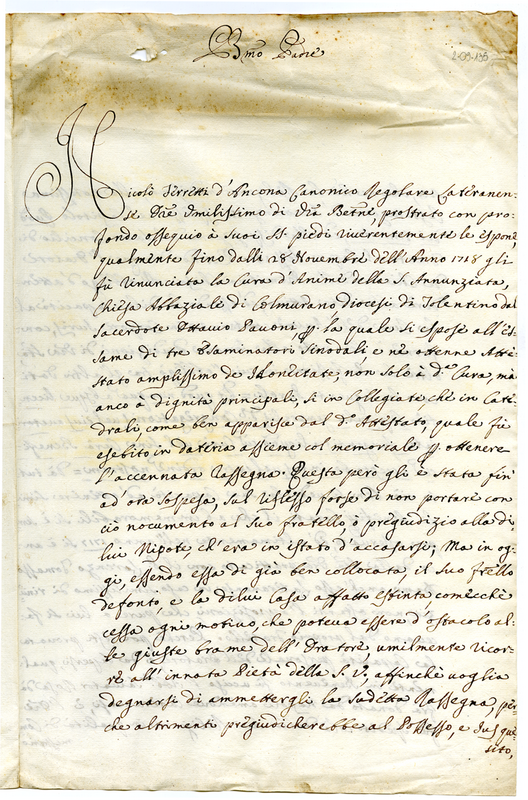 Bmo Padre
2-09-135
Nicolò Ferretti d'Ancona Canonico Regolare Lateranen-
se Orē Vmilissimo di Vrā Betnē, prostrato con pro-
fondo ossequio à suoi SS. piedi riverentemente le espone
qualmente fino dalli 28 Novembre dell'Anno 1758 gli
fù rinunciata la Cura d'Anime della S. Annunziata,
Chiesa Abbaziale di Colmurano Diocesi di Tolentino dal
sacerdote Ottavio Pavoni, p. la quale si espose all'es-
same di tre Esaminatori Sinodali e ne ottenne Atte-
stato amplissimo de Idoneitate, non solo à d.a Cura, mà
anco à dignità principali, sì in Collegiate che in Cate-
drali come ben apparisce dal d.o Attestato, quale fù
esebito in dateria assieme col memoriale p. ottenere
l'accennata Rassegna. Questa però gli è stata fin'
ad'ora sospesa, sul riflesso forse di non portare con
ciò nocumento al suo fratello, ò pregiudizio alla di
lui Nipote, ch'era in istato d'accasarsi; Ma in og-
gi, essendo essa di già ben collocata, il suo frēllo
defonto, e la dilui Casa affatto estinta, comecchè
cessa ogni motivo, che poteva essere d'ostacolo al-
le giuste brame dell'Oratore, umilmente ricor-
re all'innata Pietà della S. V., affinchè voglia
degnarsi di ammettergli la sudetta Rassegna, per-
che altrimenti pregiudicherebbe al Possesso, e Jus que-
sito,